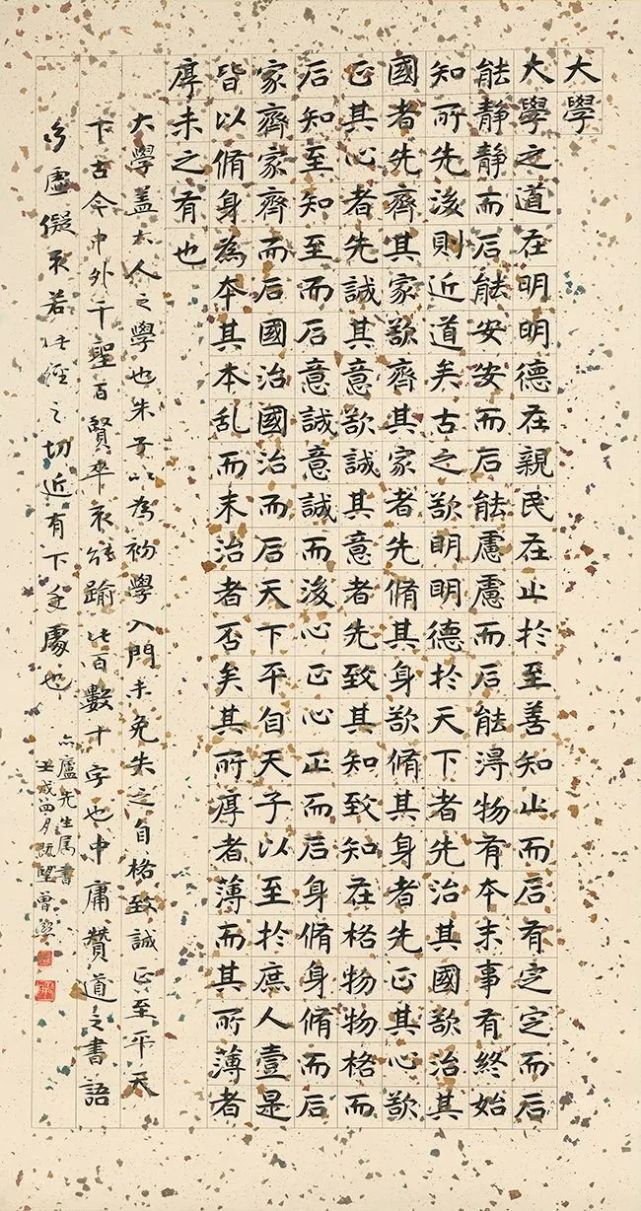 大學
大學之道在明明德在親民在止於至善知止而后有定定而后
能静静而后能安安而后能慮慮而后能得物有本末事有終始
知所先後則近道矣古之欲明明德於天下者先治其國欲治其
國者先齊其家欲齊其家者先脩其身欲脩其身者先正其心欲
正其心者先誠其意欲誠其意者先致其知致知在格物物格而
后知至知至而后意誠意誠而後心正心正而后身脩身脩而后
家齊家齊而后國治國治而后天下平自天子以至於庶人壹是
皆以脩身為本其本乱而末治者否矣其所厚者薄而其所薄者
厚未之有也
大學蓋大人之學也朱子以為初學入門未免失之自格致誠正至平天
下古今中外千聖百賢卒不能踰此百數十字也中庸贊道之書語
多虛儗不若此經之切近有下手處也
廬先生属書
壬戌四月曾熙